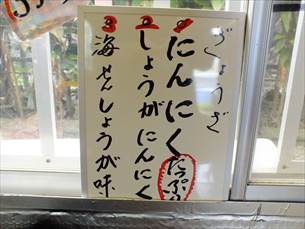 ぎょうざ
1 にんにくたっぷり
2 しょうがにんにく
3 海せんしょうが味